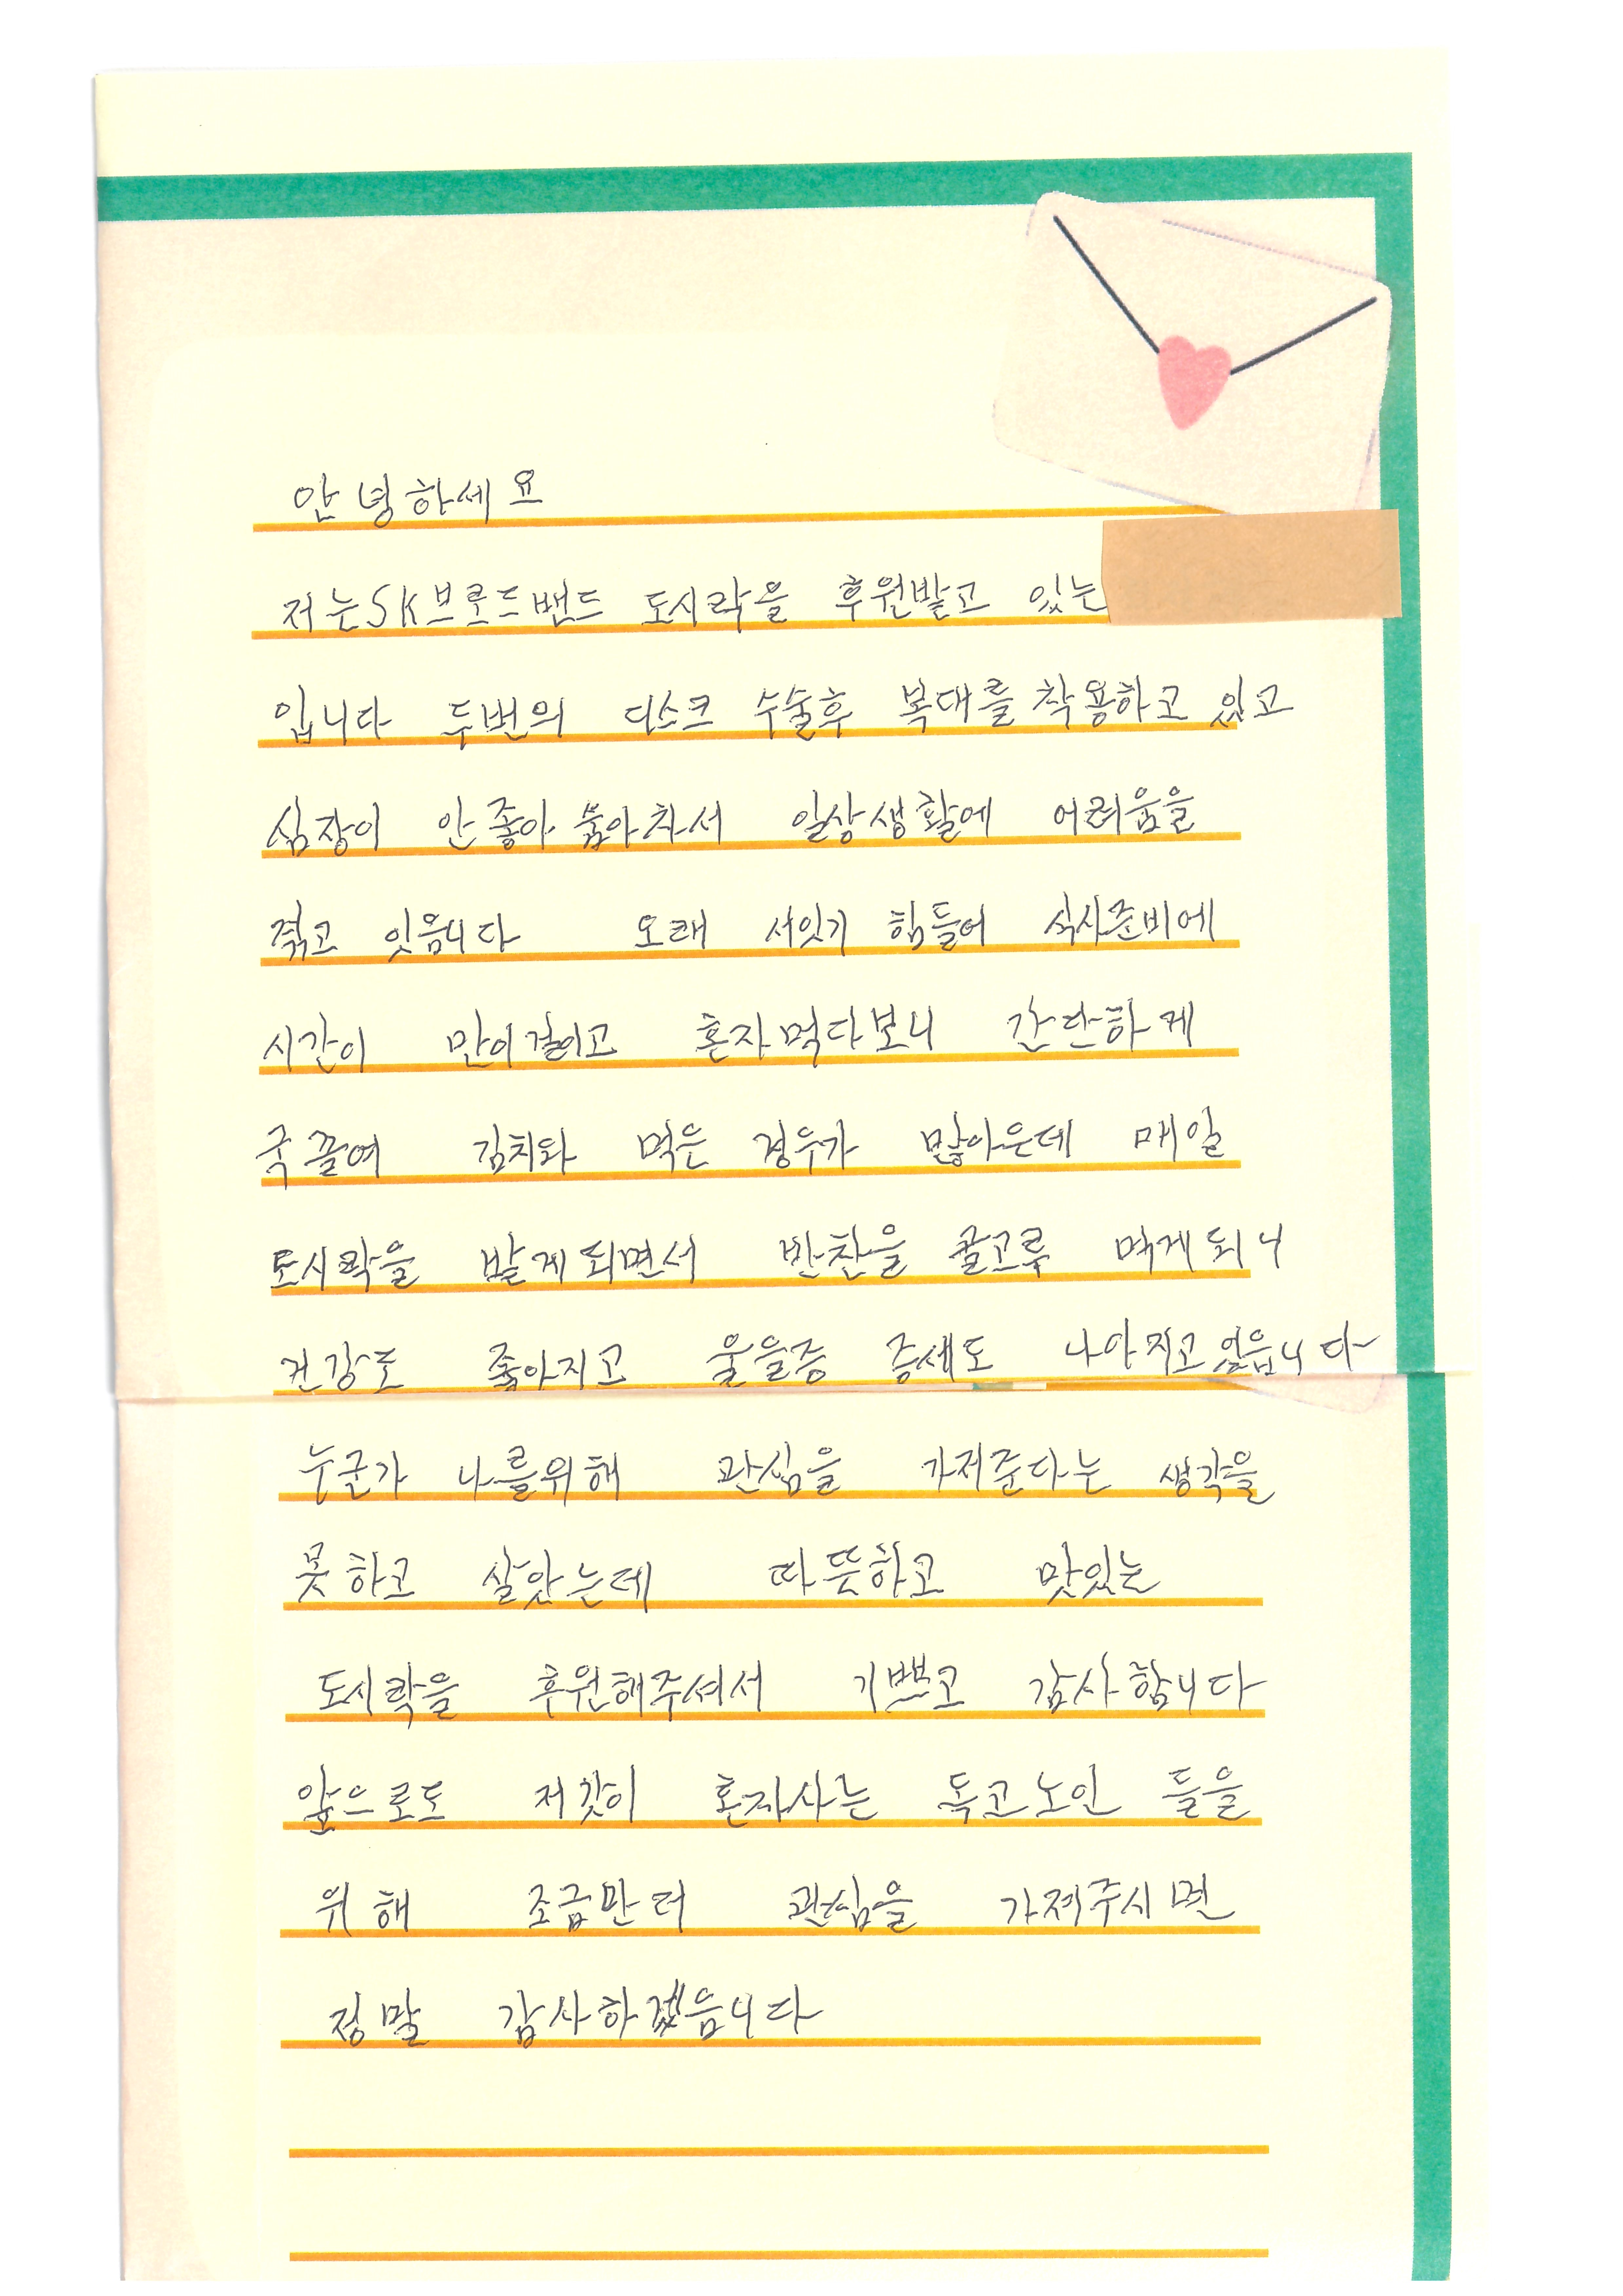 안녕하세요
저는SK브로드밴드 도시락을 후원받고 있는
입니다 두번의 디스크 수술후 복대를 착용하고 있고
심장이 안좋아 숨이차서 일상생활에 어려움을
겪고 잇읍니다 오래 서잇기 힘들어 식사준비에
시간이 만이걸이고 혼자먹다보니 간단하게
국끓여 김치와 먹은 경우가 많아은데 매일
도시락을 받게되면서 반찬을 골고루 먹게되니
건강도 좋아지고 울을증 증세도 나아지고있읍니다
누군가 나를위해 관심을 가저준다는 생각을
못하고 살았는데 따뜻하고 맛있는
도시락을 후원해주셔서 기쁘고 감사합니다
앞으로도 저갗이 혼자사는 독고노인 들을
위해 조금만더 관심을 가져주시면
정말 감사하겠읍니다